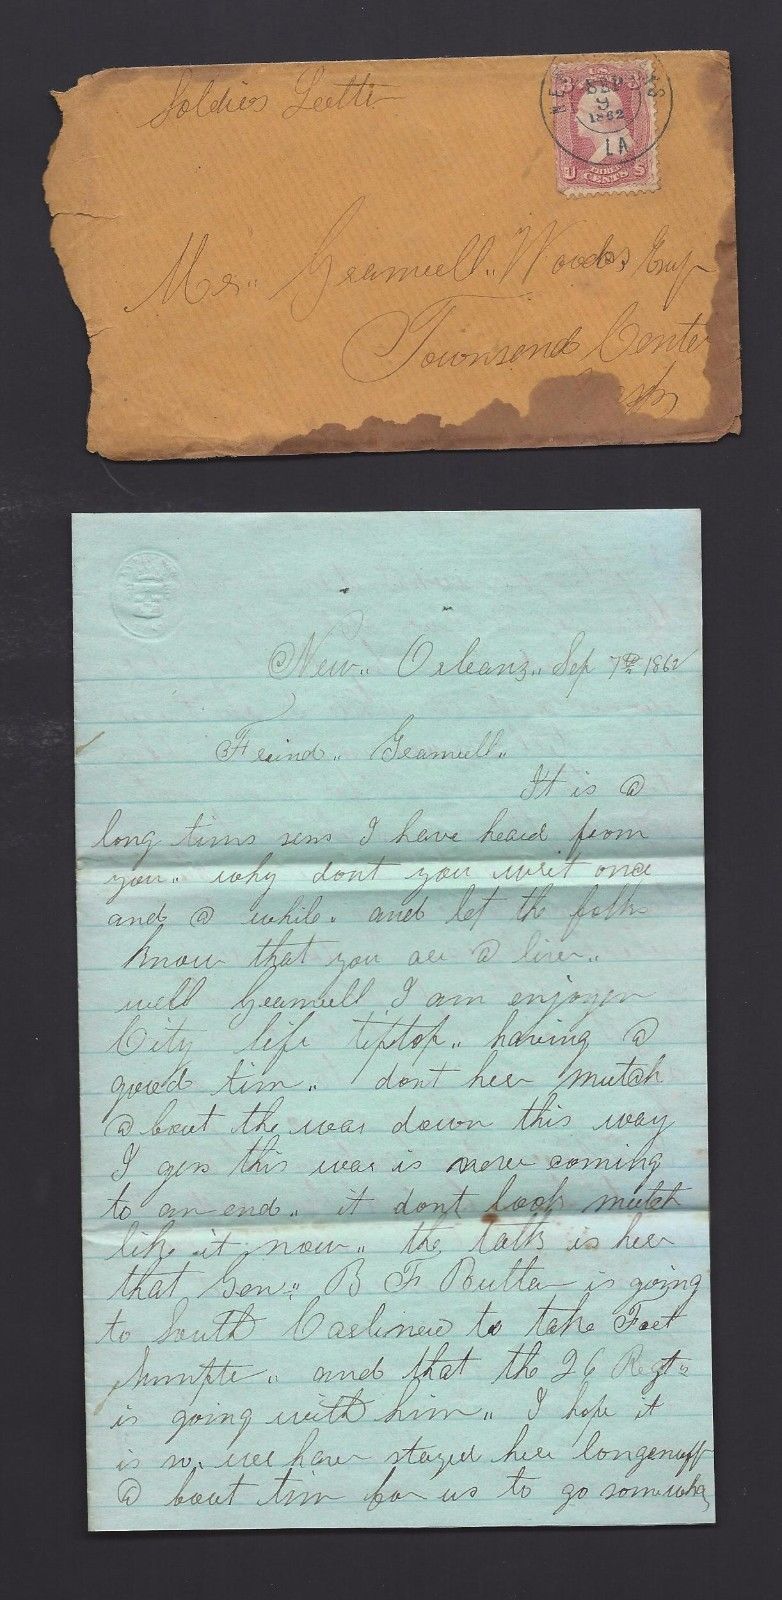 Soldiers Letter
NEW
SEP
9
1862
LA
U S
THREE
CENTS
Mr,, Gramvell,, Woods, Esqr
Townsend Center
New,, Orleanz,, Sep 7th 1862
Freind,, Gramvell,,
It is @
long tims sens I have heard from
you,, why dont you writ once
and @ while,, and let the folks
know that you are @ live,,
well Gramvell I am enjoyen
City life tiptop,, having @
good tim,, dont her mutch
@ bout the war down this way
I gess this war is never coming
to an end,, it dont look mutch
like it now,, the talk is her
that Gen,, B F Buttar is going
to South Carlinew to take Fort
Sumpte,, and that the 26 Regt
is going with him,, I hope it
is so,, we have stayed her longenuff
@ bout tim for us to go somewha